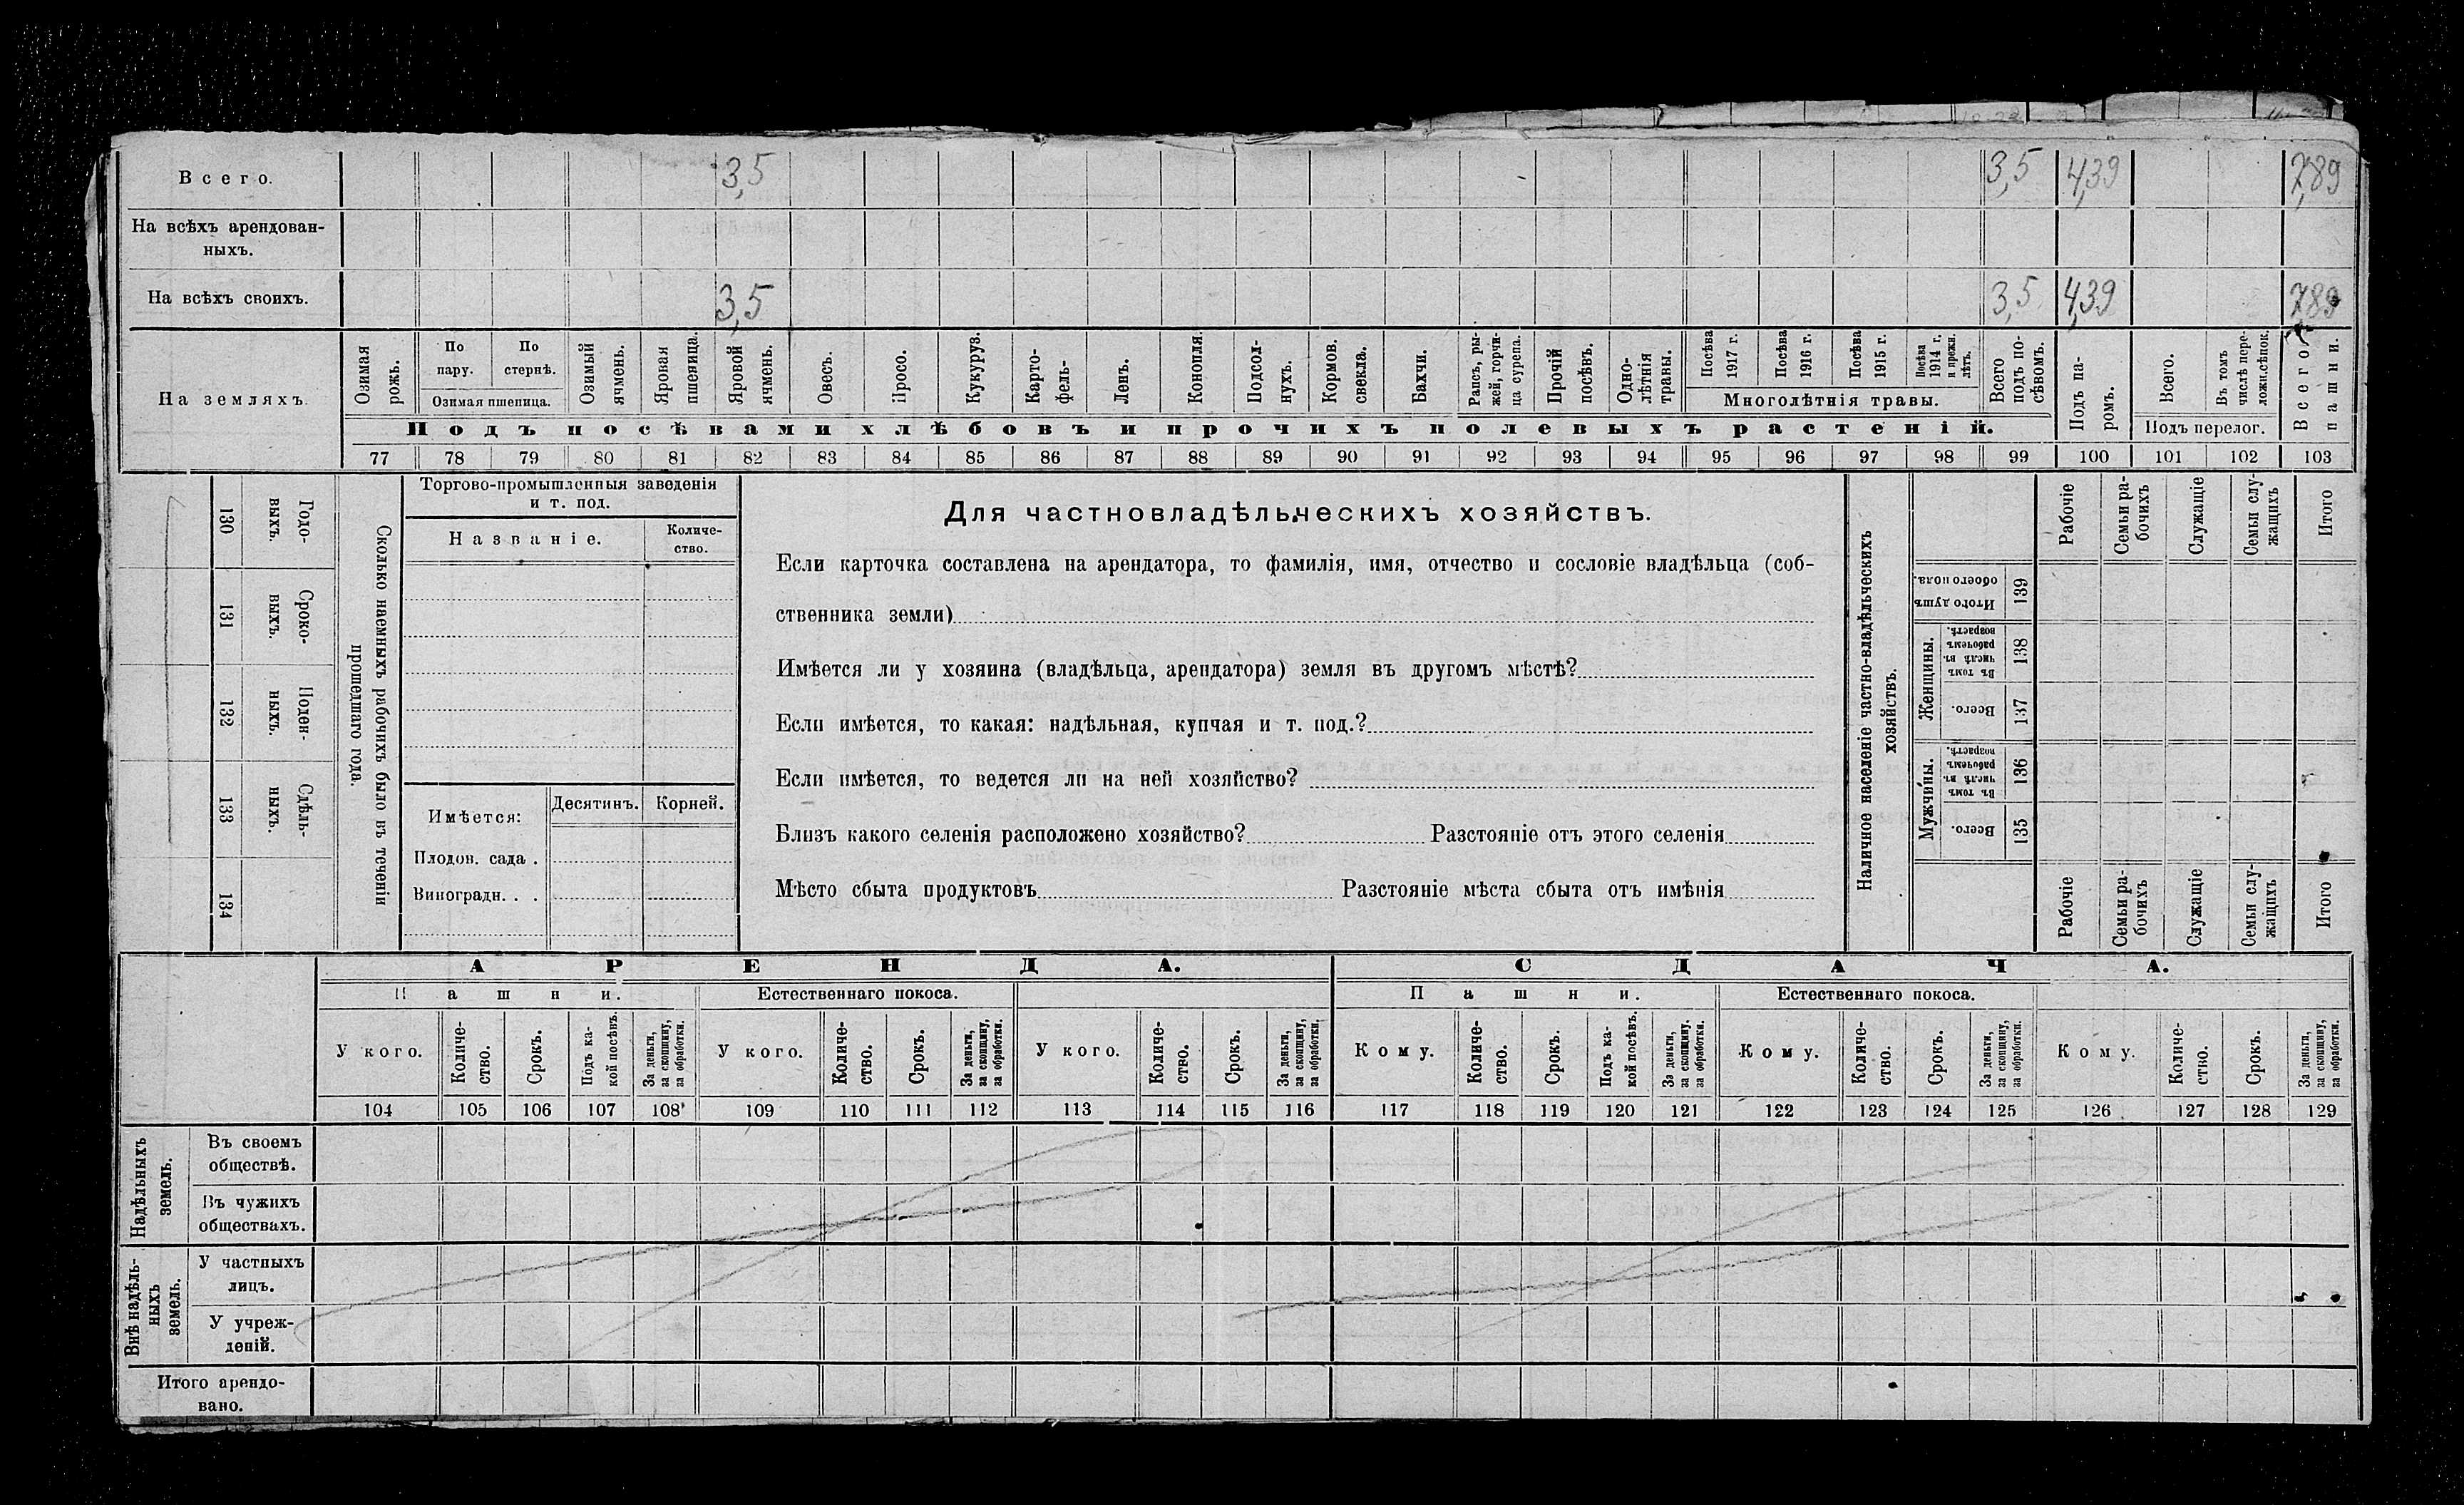 Всего. 3,5 3,5 4,39 7,89
На всѣхъ арендован-
ныхъ.
На всѣхъ своихъ. 3,5 3,5 4,39 7,89
На земляхъ.
Озимая рожь.
По пару.
По стернѣ.
Озимая пшеница.
Озимый ячмень.
Яровая пшеница.
Яровой ячмень.
Овесъ.
Просо.
Кукуруз.
Карто-
фель-
Ленъ.
Конопля.
Подсол-
нухъ.
Кормов. свекла.
Бахчи.
Рапсъ, ры-
жей, горчи-
ца сурепа.
Прочій посѣвъ.
Одно-
лѣтнія травы.
Посѣва 1917 г.
Посѣва 1916 г.
Посѣва 1915 г.
Посѣва 1914 г. и прежн. лѣтъ.
Многолѣтнія травы.
Всего подъ по-
сѣвомъ.
Подъ па-
ромъ.
Всего.
Въ томъ числѣ пере-
ложн. сѣнок.
Подъ перелог.
Всего пашни.
Подъ посѣвами хлѣбовъ и прочихъ полевыхъ растеній.
77 78 79 80 81 82 83 84 85 86 87 88 89 90 91 92 93 94 95 96 97 98 99 100 101 102 103
130 Годо-
выхъ.
131 Сроко-
выхъ.
132 Поден-
ныхъ.
133 Сдѣль-
ныхъ.
134
Сколько наемныхъ рабочихъ было въ теченіи
прошедшаго года.
Торгово-промышленныя заведенія
и т. под.
Названіе.
Количе-
ство.
Имѣется:
Десятинъ. Корней.
Плодов. сада .
Виноградн. . .
Для частновладѣльческихъ хозяйствъ.
Если карточка составлена на арендатора, то фамилія, имя, отчество и сословіе владѣльца (соб-
ственника земли)
Имѣется ли у хозяина (владѣльца, арендатора) земля въ другомъ мѣстѣ?
Если имѣется, то какая: надѣльная, купчая и т. под.?
Если имѣется, то ведется ли на ней хозяйство?
Близъ какого селенія расположено хозяйство? Разстояніе отъ этого селенія
Мѣсто сбыта продуктовъ Разстояніе мѣста сбыта отъ имѣнія
Наличное населеніе частно-владѣльческихъ
хозяйствъ.
Рабочіе
Семьи ра-
бочихъ
Служащіе
Семьи слу-
жащихъ
Итого
Итого душъ обоего пола.
139
Женщины.
Въ томъ числѣ въ рабочемъ возрастѣ.
138
Всего.
137
Мужчины.
Въ томъ числѣ въ рабочемъ возрастѣ.
136
Всего.
135
Рабочіе
Семьи ра-
бочихъ
Служащіе
Семьи слу-
жащихъ
Итого
АРЕНДА. СДАЧА.
Пашни. Естественнаго покоса. Пашни. Естественнаго покоса.
У кого.
Количе-
ство.
Срокъ.
Подъ ка-
кой посѣвъ.
За деньги,
за скопщину,
за обработки.
У кого.
Количе-
ство.
Срокъ.
За деньги,
за скопщину,
за обработки.
У кого.
Количе-
ство.
Срокъ.
За деньги,
за скопщину,
за обработки.
Кому.
Количе-
ство.
Срокъ.
Подъ ка-
кой посѣвъ.
За деньги,
за скопщину.
за обработки.
Кому.
Количе-
ство.
Срокъ.
За деньги,
за скопщину,
за обработки.
Кому.
Количе-
ство.
Срокъ.
За деньги,
за скопщину,
за обработки.
104 105 106 107 108 109 110 111 112 113 114 115 116 117 118 119 120 121 122 123 124 125 126 127 128 129
Надѣльныхъ
земель.
Въ своемъ
обществѣ.
Въ чужихъ
обществахъ.
Внѣ надѣль-
ныхъ
земель.
У частныхъ
лицъ.
У учреж-
деній.
Итого арендо-
вано.